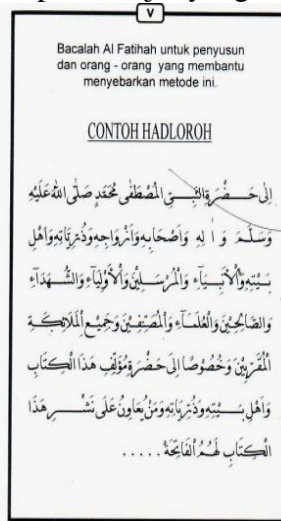 ٧
Bacalah Al Fatihah untuk penyusun
dan orang - orang yang membantu
menyebarkan metode ini.
CONTOH HADLOROH
اِلٰى حَضْرَةِ النَّبِيِّ الْمُصْطَفٰى مُحَمَّدٍ صَلَّى اللهُ عَلَيْهِ
وَسَلَّمَ وَاٰلِهِ وَاَصْحَابِهِ وَاَزْوَاجِهِ وَذُرِّيَّاتِهِ وَاَهْلِ
بَيْتِهِ وَالْاَنْبِيَاءِ وَالْمُرْسَلِيْنَ وَالْاَوْلِيَاءِ وَالشُّهَدَاءِ
وَالصَّالِحِيْنَ وَالْعُلَمَاءِ وَالْمُصَنِّفِيْنَ وَجَمِيْعِ الْمَلَائِكَةِ
الْمُقَرَّبِيْنَ وَخُصُوْصًا اِلٰى حَضْرَةِ مُؤَلِّفِ هَذَا الْكِتَابِ
وَاَهْلِ بَيْتِهِ وَذُرِّيَّاتِهِ وَمَنْ يُعَاوِنُ عَلَى نَشْرِ هَذَا
الْكِتَابِ لَهُمُ الْفَاتِحَةُ . . . . .